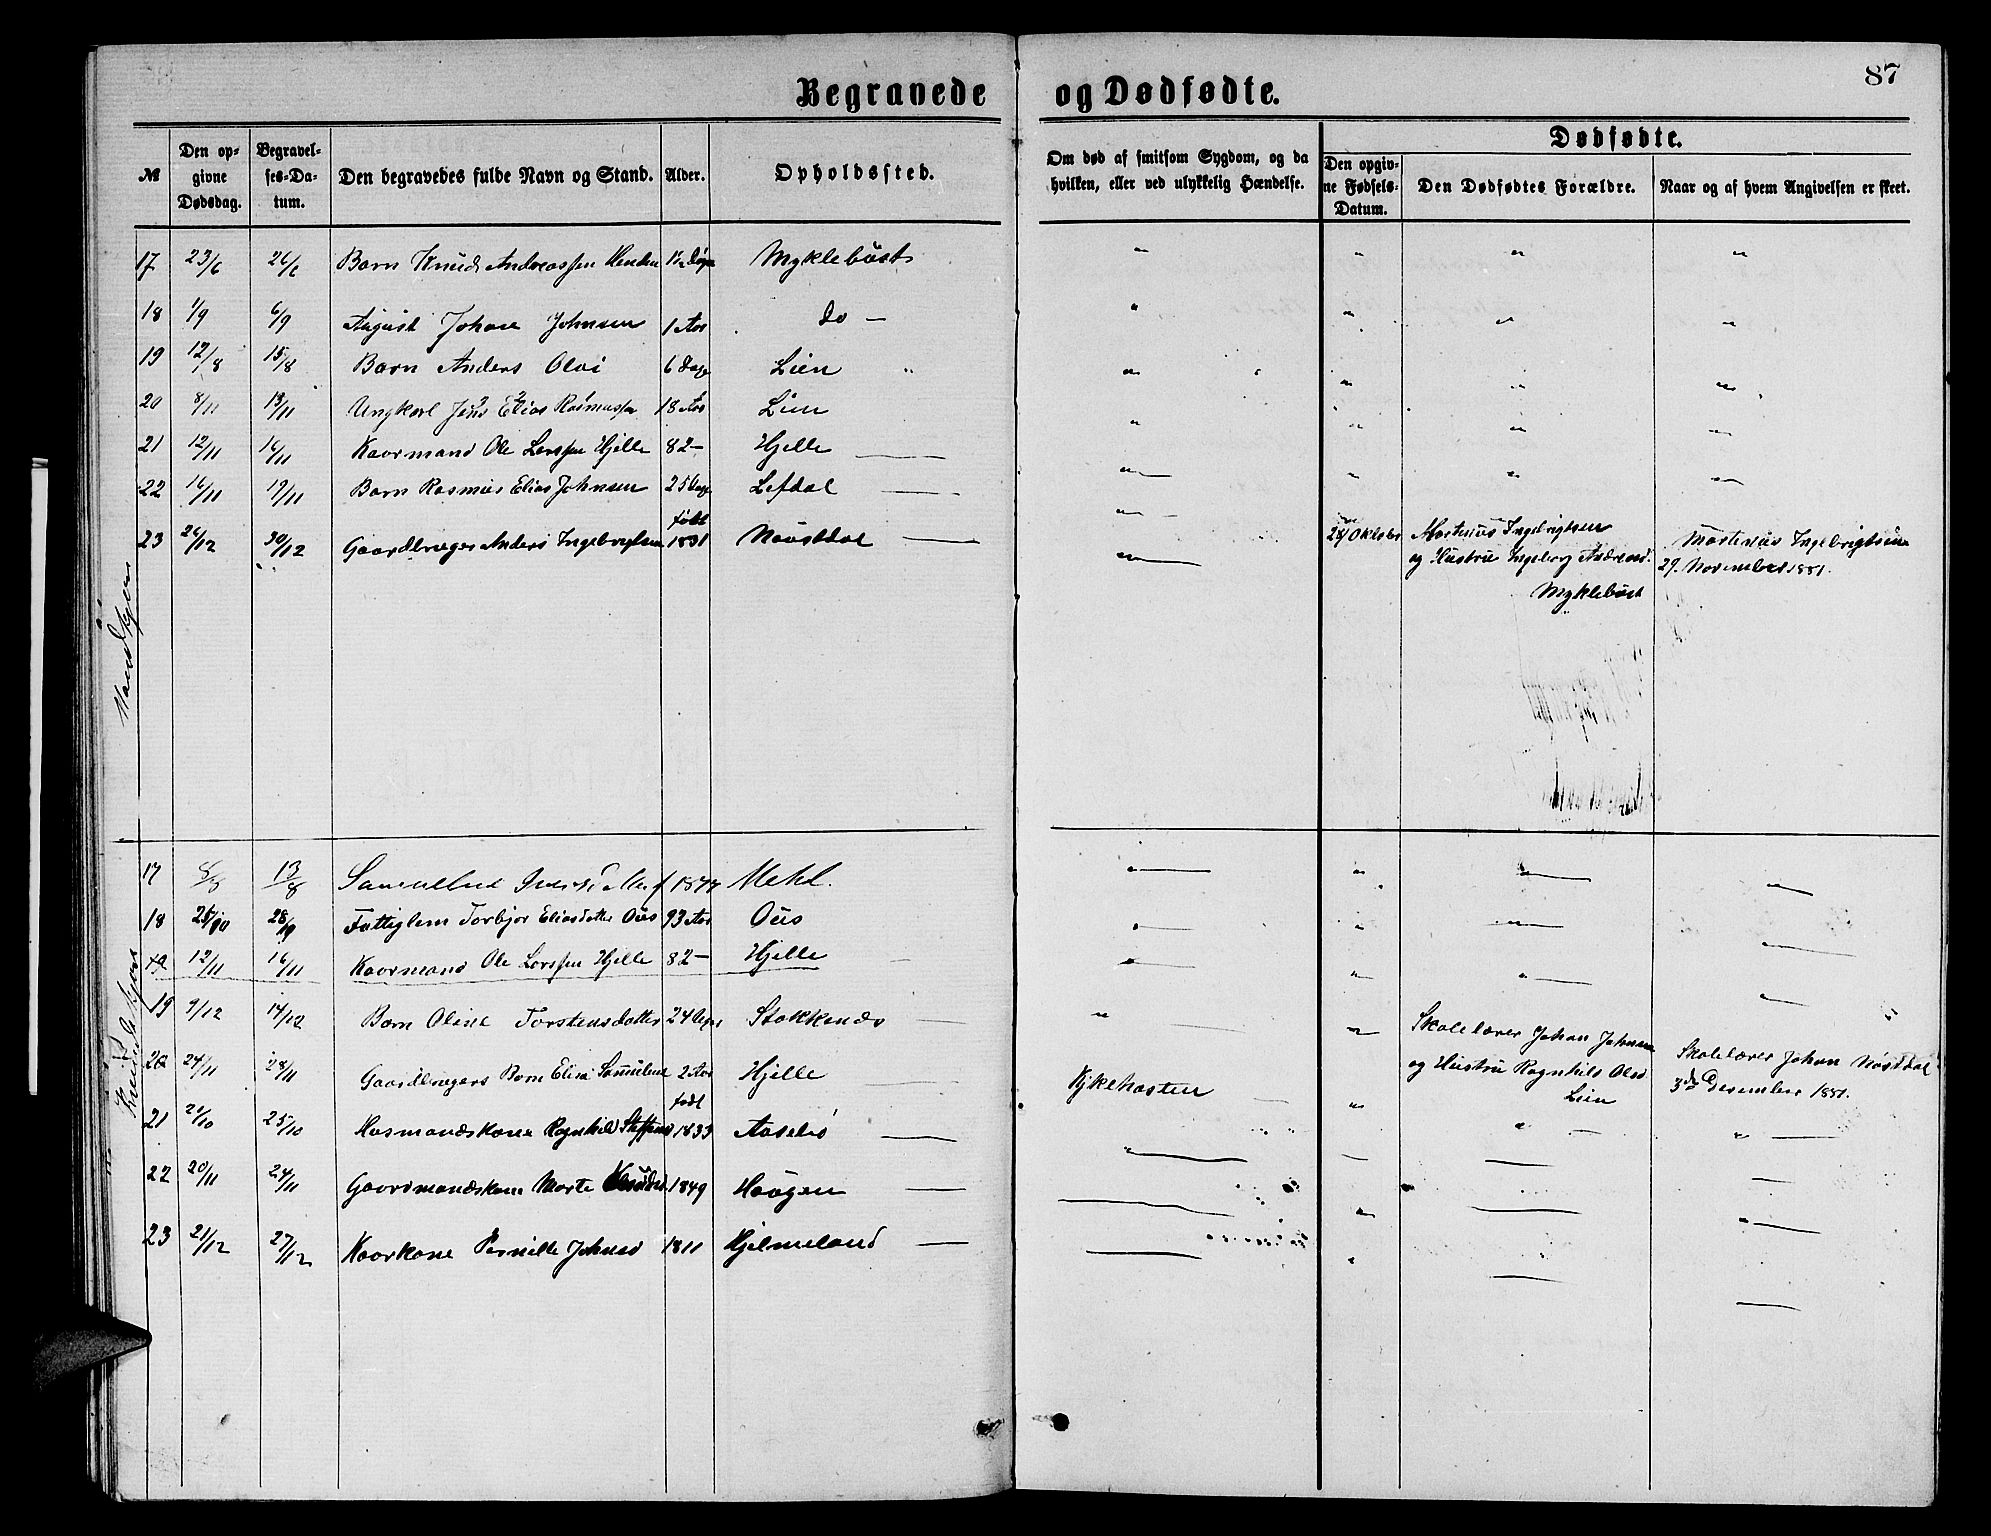 Begravede og Dødfødte.
87
№ Den opgivne Dødsdag. Begravelses-Datum. Den begravedes fulde Navn og Stand. Alder. Opholdssted. Om død af smitsom Sygdom, og da hvilken, eller ved ulykkelig Hændelse. Dødfødte. Den opgivne Fødsels-Datum. Den Dødfødtes Forældre. Naar og af hvem Angivelsen er skeet.
Mandkjøn
17 23/6 26/6 Barn Knud Andreassen Henden Myklebüst " " " "
18 1/9 6/9 August Johan Johnsen 1 Aar do — " " " "
19 12/8 15/8 Barn Anders Olai 6 Dage Lien " " " "
20 8/11 13/11 Ungkarl Jens Elias Rasmussen 18 Aar Lien " " " "
21 12/11 16/11 Kaarmand Ole Larssen Hjelle 82 — Hjelle — " " " "
22 16/11 19/11 Barn Rasmus Elias Johnsen 25 Dage Lefdal — "
23 26/12 30/12 Gaardbruger Anders Ingebrigtsen født 1831 Naustdal — "
Oktober Martinus Ingebrigtsen
og Hustru Ingeborg Andreasd.
Myklebüst
Martinus Ingebrigtsen
29. November 1881.
Kvindekjøn
17 8/8 13/8 1877 Mehl. " " " "
18 28/9 Fattiglem Torbjør Eliasdatter Ous 93 Aar Ous " " " "
19 12/11 16/11 Kaarmand Ole Larssen Hjelle 82 — Hjelle " " " "
19 9/12 14/12 Barn Oline Torstensdatter 24 Dage Stokkenæs — " "
Skolelærer Johan Johnsen
og Hustru Ragnhild Olsd
Lien
Skolelærer Johan Nøstdal
3die Desember 1881.
20 24/11 28/11 Gaardbrugers Barn Elisa Samuelsd 2 Aar Hjelle — Kjkehosten "
21 25/10 Husmandskone Ragnhild Steffensd født 1833 Aaselü — " " "
22 20/11 24/11 Gaardmandskone Marte Knudsd. 1849 Haugen —
23 21/12 27/12 Kaarkone Pernille Johnsd 1811 Hjelmeland —